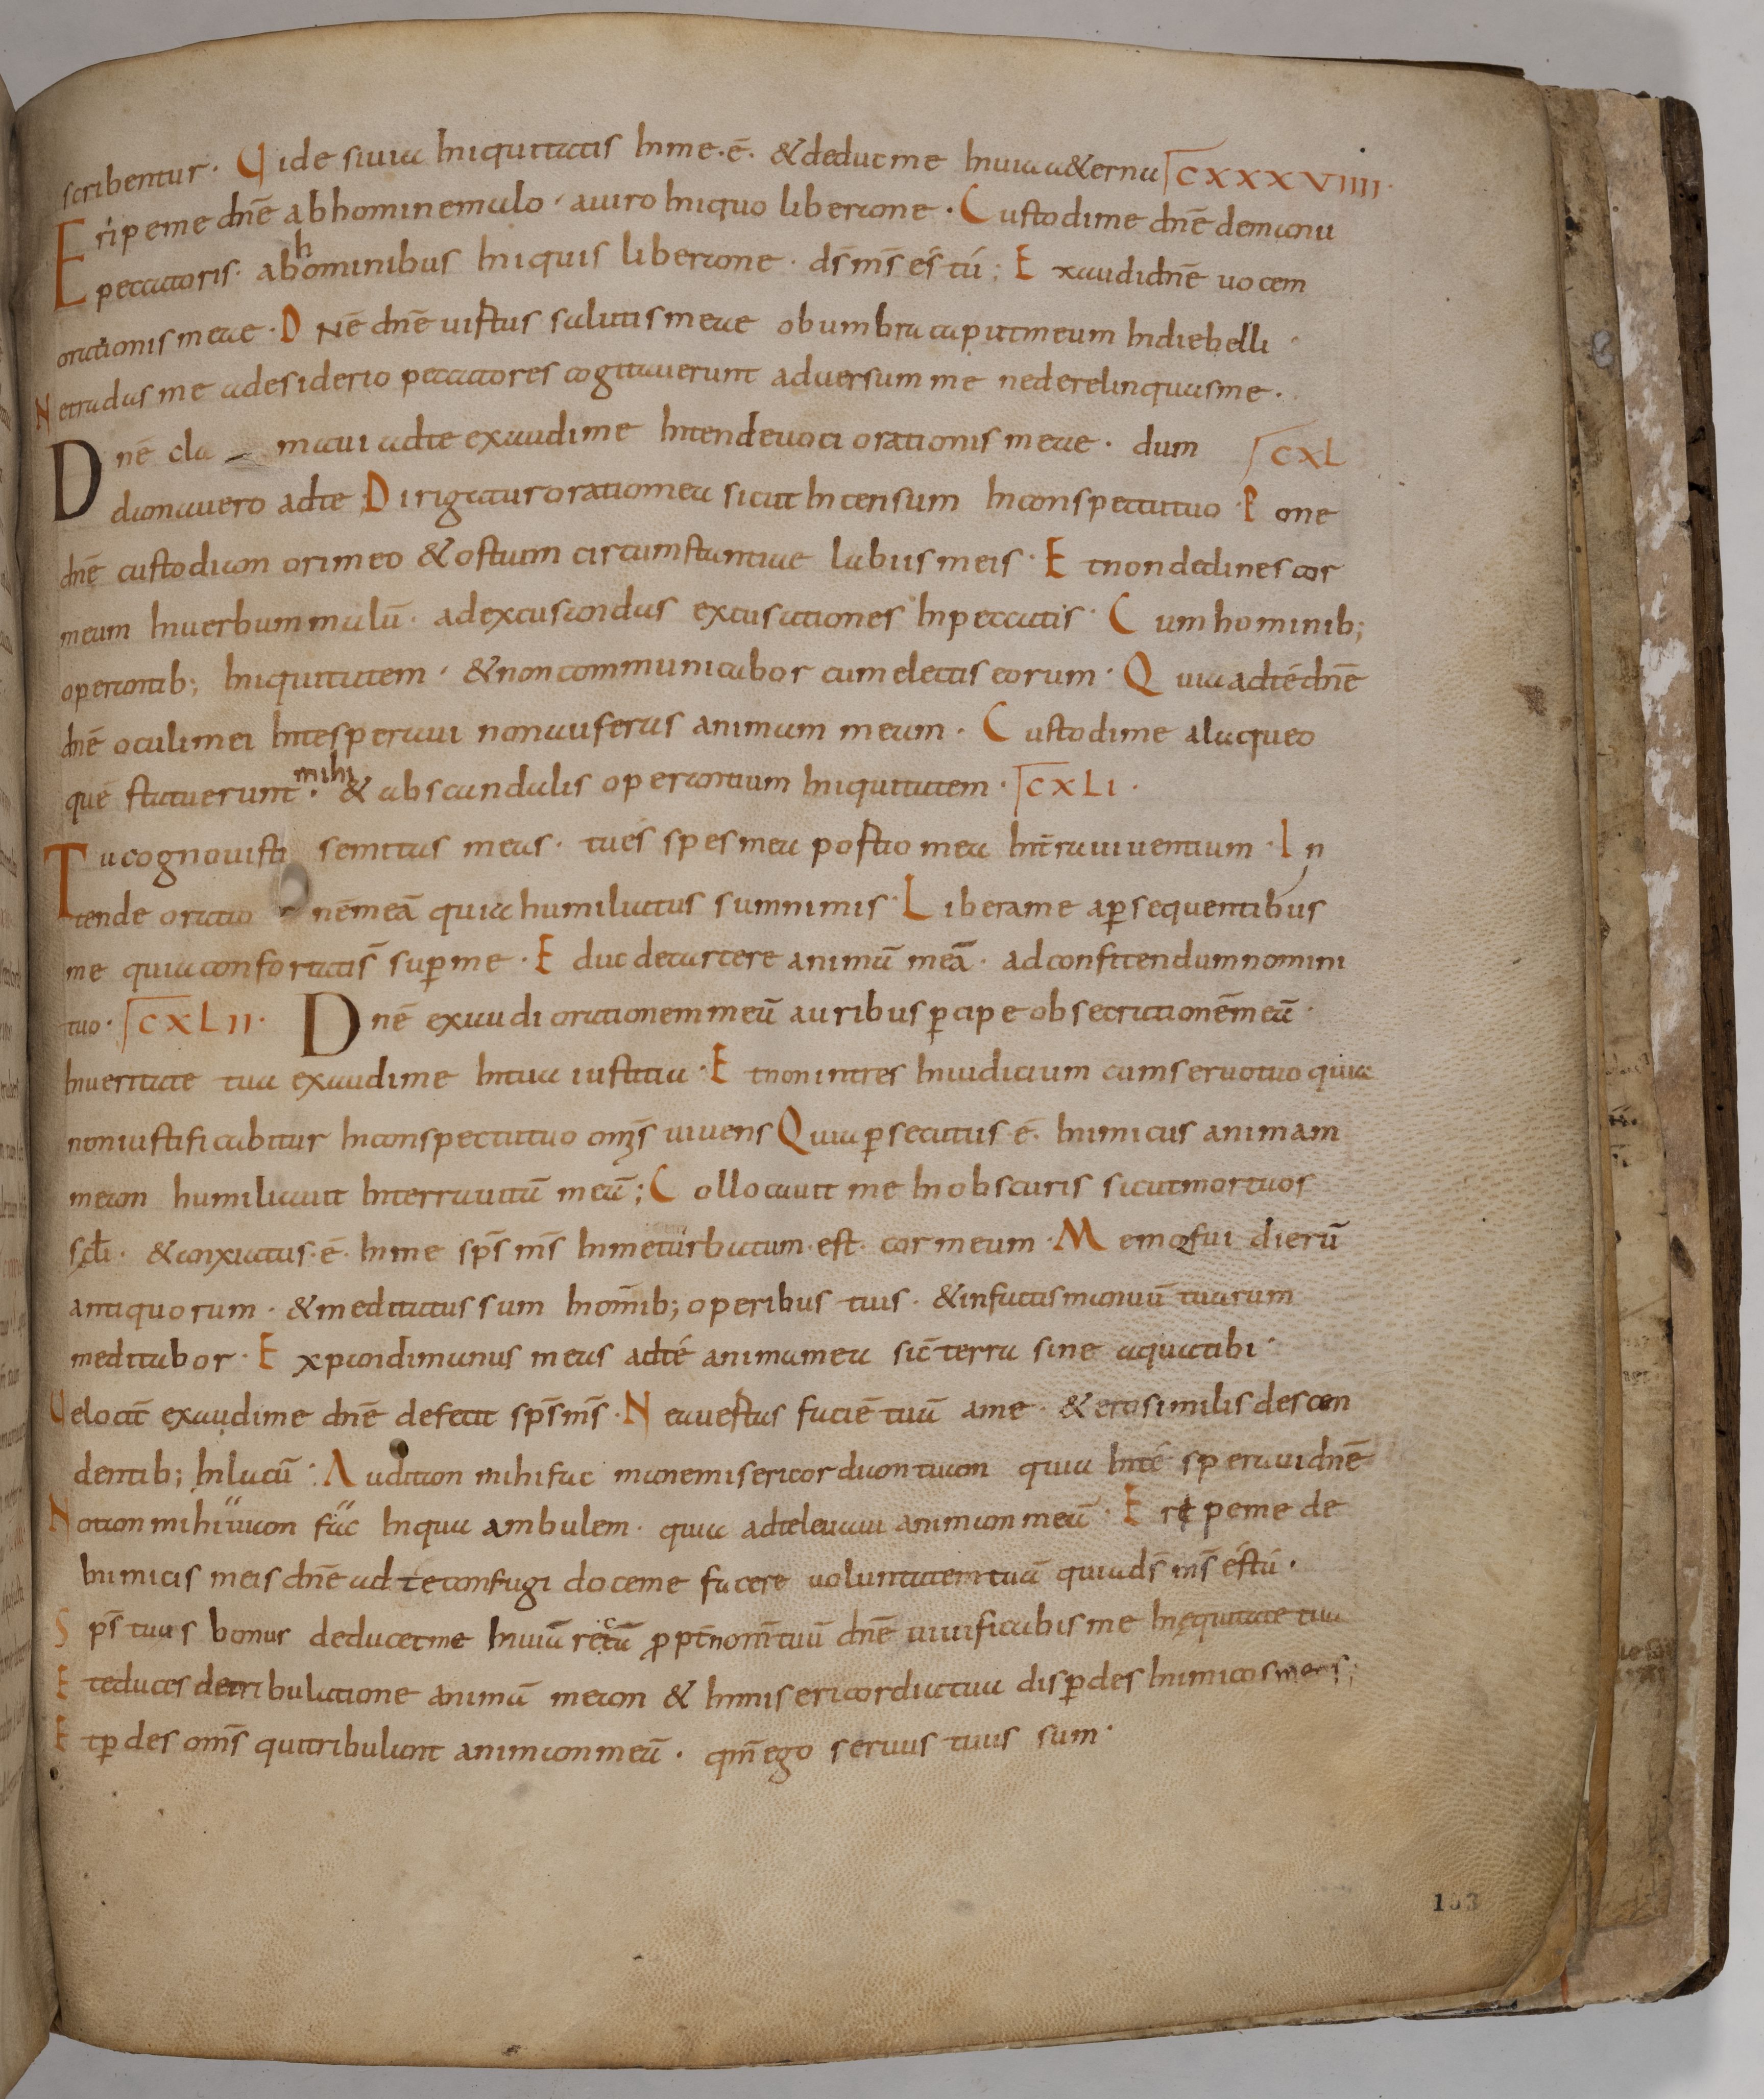 scribentur. Uide siuia iniquitatis inme.ē. &deducme inuiaa&erna CXXXVIIII.
Eripeme dnē abhominemalo. auiro iniquo liberame. Custodime dnē demanu
peccatoris. abhominibus iniquis liberame. ds̄ ms̄ és tú; Exaudidnē uocem
orationismeae. DNē dnē uirtus salutismeae obumbra caputmeum indiebelli.
Netradas me adesiderio peccatores cogitauerunt aduersum me nederelinquasme.
Dnē clamaui adte exaudime intendeuoci orationis meae. dum CXL
clamauero adte Dirigatur oratiomea sicut incensum inconspectutuo. Pone
dnē custodiam orimeo &ostium circumstantiae labiismeis. Etnondeclinescor
meum inuerbummalū. adexcusandas excusationes inpeccatis. Cumhominib;
operantib; iniquitatem. &noncommunicabor cumelectis eorum. Quiaadtédnē
dnē oculimei intesperaui nonauferas animam meam. Custodime alaqueo
qué statuerunt mihi. & abscandalis operantium iniquitatem. CXLI.
Tucognouisti semitas meas. tués spesmea portio mea int̄rauiuentium. In
tende oratio nēmeā quiahumiliatus sumnimis. Liberame apsequentibus
me quiaconfortatis̄ sup̄me. Educdecarcere animā meā. adconfitendumnomini
tuo. CXLII. Dnē exaudi orationemmeā auribusp̄cipe obsecrationēmeā.
inueritate tua exaudime intua iustitia. Etnonintres iniudicium cumseruotuo quia
noniustificabitur inconspectutuo omīs uiuens Quiap̄secutus ē. inimicus animam
meam humiliauit interrauitā meā; Collocauit me inobscuris sicutmortuos
scl̄i. &anxiatus.ē. inme sps̄ ms̄ inmeturbatum.est. cormeum. Memorfui dierū
antiquorum. &meditatus sum inom̄ib; operibus tuis. &infactismanuū tuarum
meditabor. Expandimanus meas adté animamea sic̄ terra sine aquatibi.
Uelocit̄ exaudime dnē defecit sps̄ms̄. Neauertas faciē tuā ame. &erosimilis descen
dentib; inlacū. Auditam mihifac manemisericordiamtuam quia inté sperauidnē
Notam mihi uiam fac inqua ambulem. quia adteleuaui animammeā. Eripeme de
inimicis meis dnē ad teconfugi doceme facere uoluntatemtuā quiads̄ ms̄ éstú.
Sps̄ tuus bonus deducetme inuiā rectā pp̄tnom̄tuū dnē uiuificabisme inęquitate tua
Eteduces detribulatione animā meam & inmisericordiatua disp̄des inimicosmeos;
Etp̄des oms̄ quitribulant animammeā. qm̄ego seruus tuus sum.
103